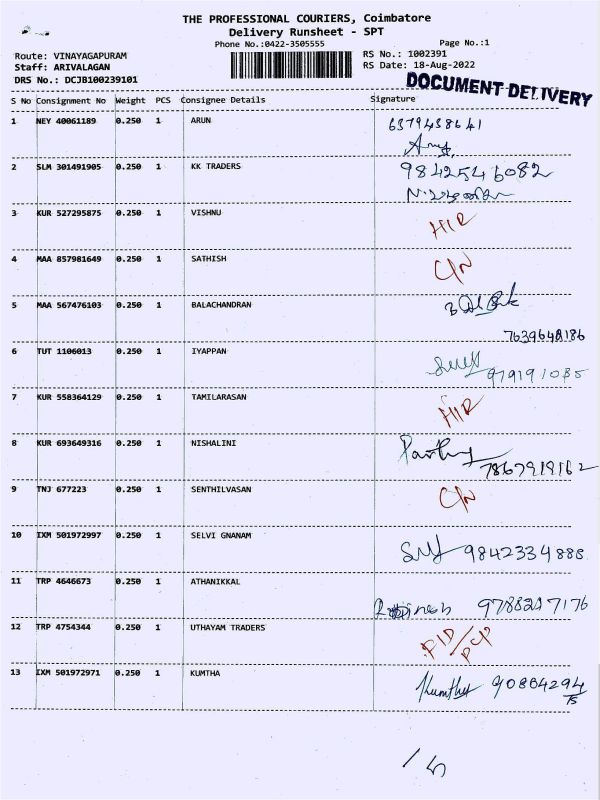 THE PROFESSIONAL COURIERS, Coimbatore
Delivery Runsheet - SPT
Phone No.:0422-3505555 Page No.:1
Route: VINAYAGAPURAM RS No.: 1002391
Staff: ARIVALAGAN RS Date: 18-Aug-2022
DRS No.: DCJB100239101
DOCUMENT DELIVERY
S No Consignment No Weight PCS Consignee Details Signature
1 NEY 40061189 0.250 1 ARUN 6379438641
2 SLM 301491905 0.250 1 KK TRADERS 9842546082
3 KUR 527295875 0.250 1 VISHNU
4 MAA 857981649 0.250 1 SATHISH
5 MAA 567476103 0.250 1 BALACHANDRAN
7639648186
6 TUT 1106013 0.250 1 IYAPPAN
7 KUR 558364129 0.250 1 TAMILARASAN
8 KUR 693649316 0.250 1 NISHALINI
7867919162
9 TNJ 677223 0.250 1 SENTHILVASAN
10 IXM 501972997 0.250 1 SELVI GNANAM
9842334888
11 TRP 4646673 0.250 1 ATHANIKKAL
12 TRP 4754344 0.250 1 UTHAYAM TRADERS
13 IXM 501972971 0.250 1 KUMTHA Kumtha